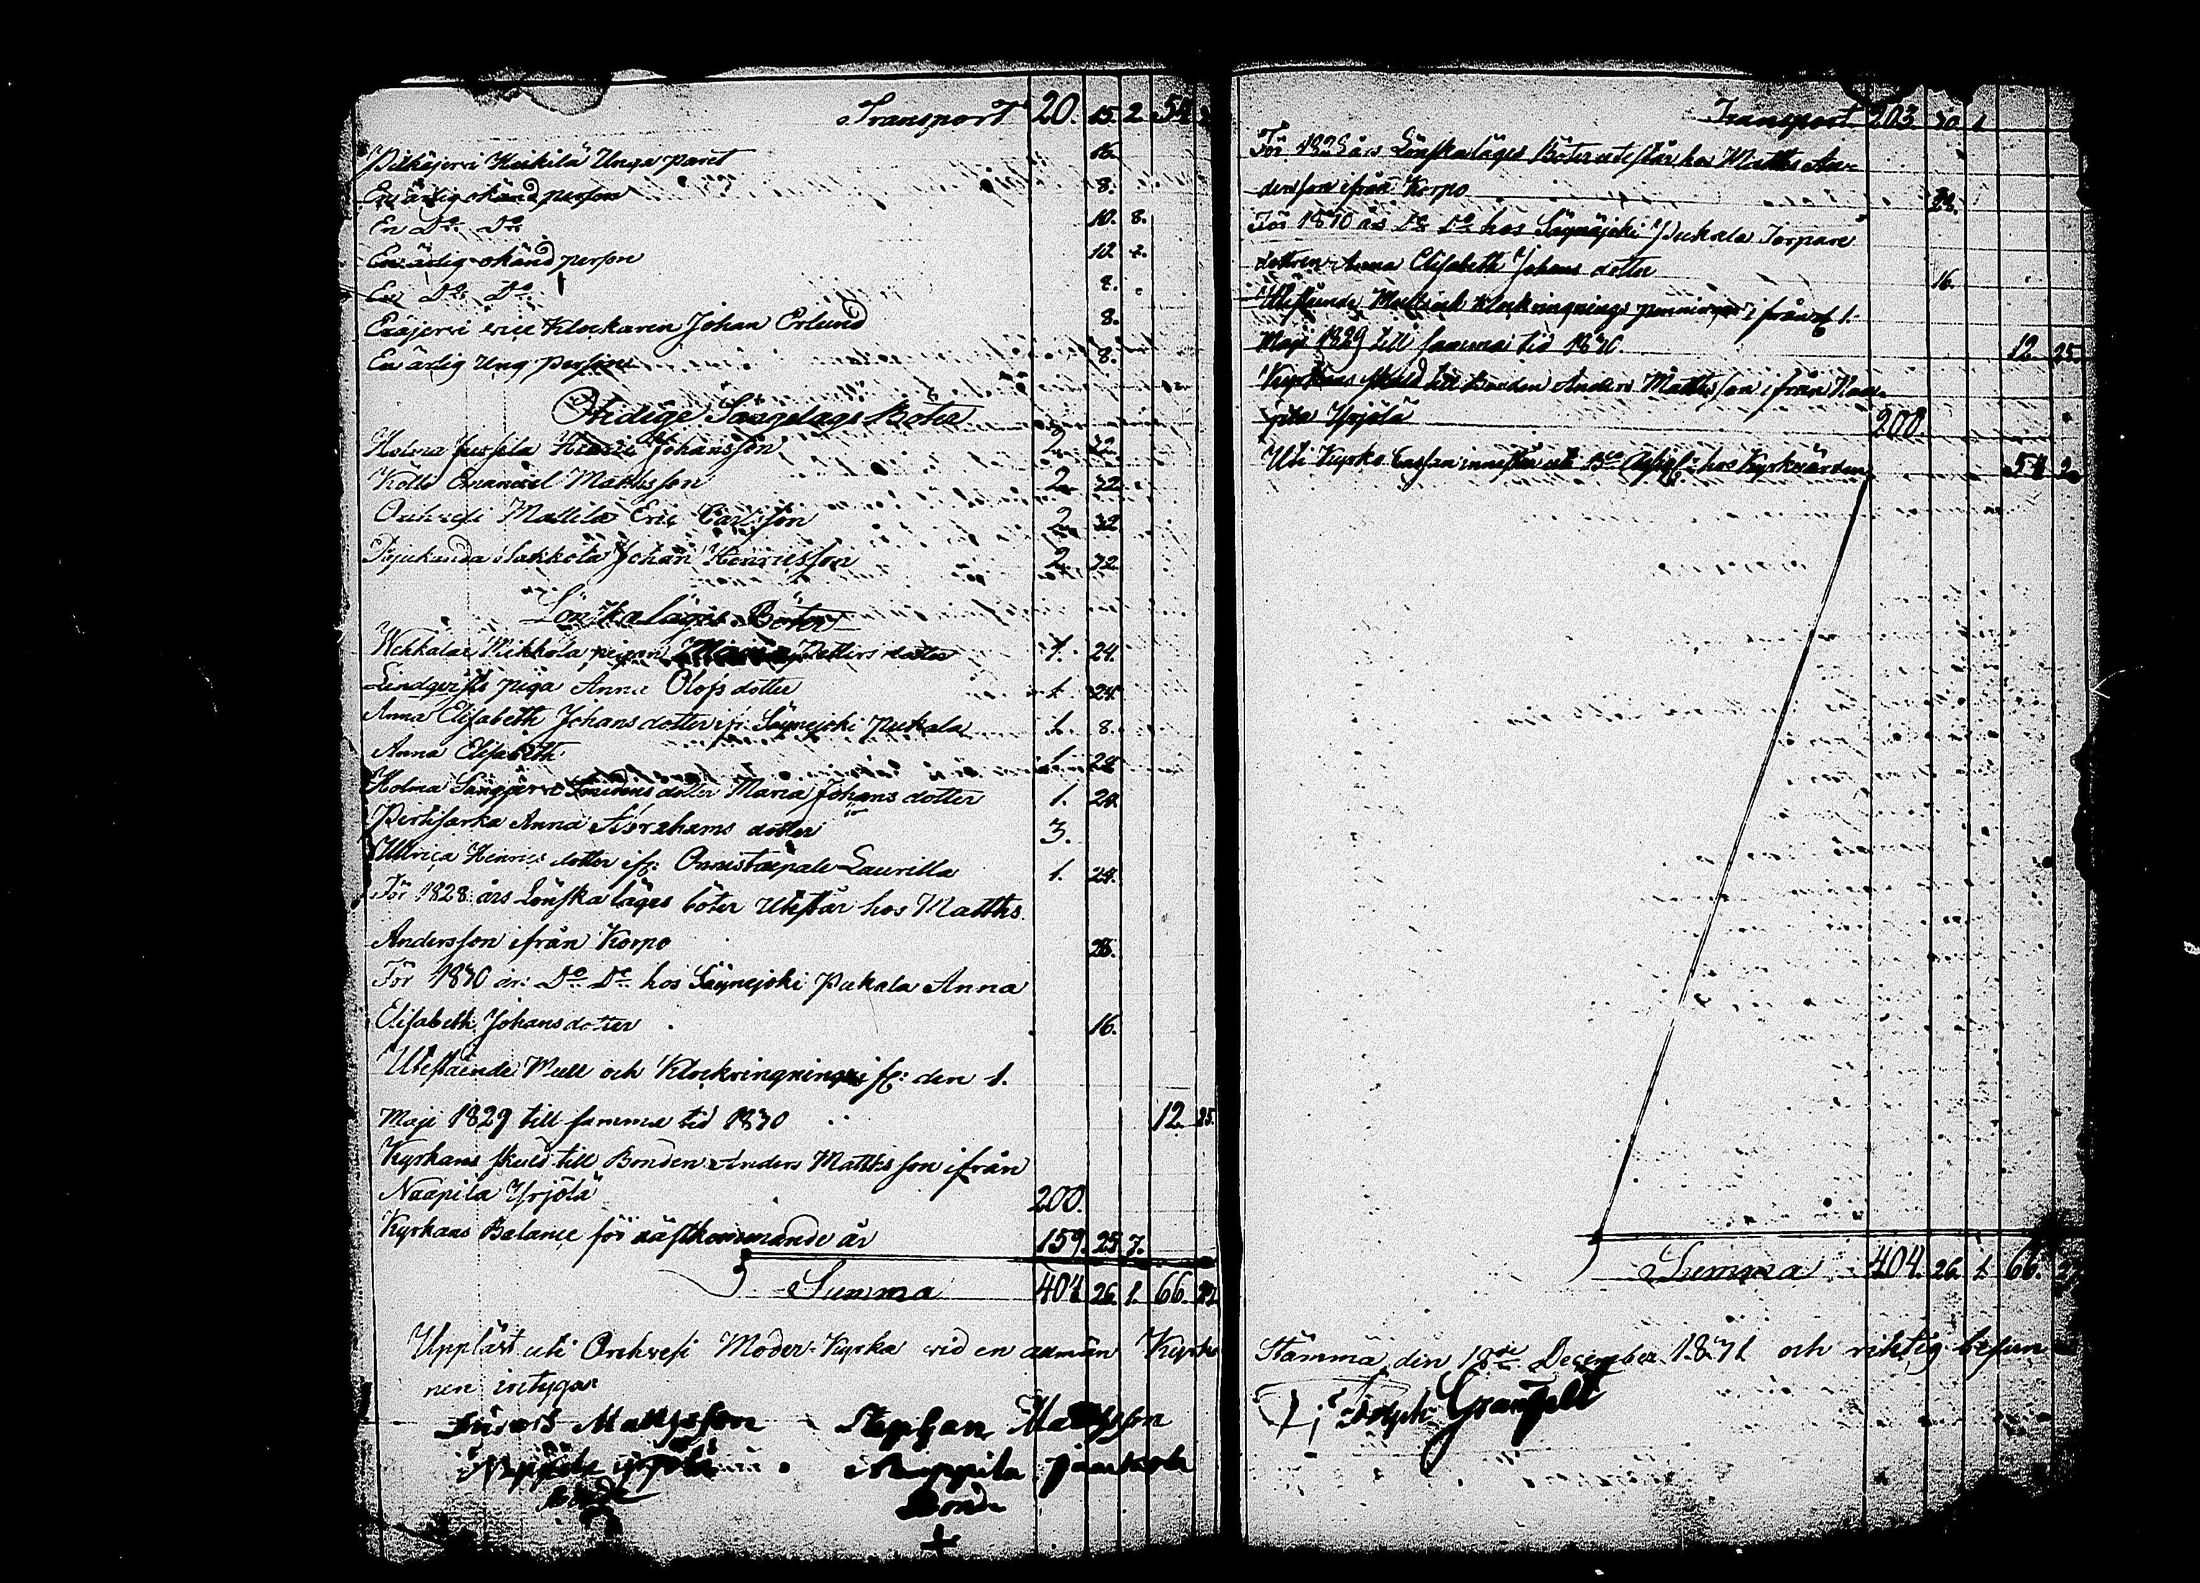 Transport 20. 15. 2. 54 2
Pitkäjervi Heikilä Unga paret 16.
En ärlig okänd person 8.
En Do. Do. 10. 8.
En ärlig okänd person 12. 4.
En Do. Do. 8.
Enäjervi vice Klockaren Johan Erlund 8.
En ärlig Ung person 8.
Otidige Sängelags Böter
Holma Johansson 2. 32.
Köllö Emanuel Mattsson 2. 32.
Orihvesi Mattila Eric Carlsson 2. 32.
Johan Henricsson 2. 32.
Lönska läges Böter
Wehkalax Mikkola pigan Maria Petters dotter 1. 24.
Lindqvists piga Anna Olofs dotter 1. 24.
Anna Elisabeth Johans dotter ifr. Säynejoki Pukala 1. 8.
Anna Elisabeth 1. 24.
Holma Smedens dotter Maria Johans dotter 1. 24.
Pertisarka Anna Abrahams dotter 3.
Ulrica Henrics dotter ifr: Onnistaipale Laurilla 1. 24.
För 1828 års Lönska läges böter Utestår hos Matths
Andersson ifrån Korpo 28.
För 1830 år: Do Do hos Säynejoki Pukala Anna
Elisabeth Johansdotter 16.
Utestående Mull och Klockringnings fr: den 1.
Maji 1829 till samma tid 1830 12. 25.
Kyrkans skuld till Bonden Anders Matthsson ifrån
Naapila Yrjölä 200.
Kyrkans Balance för nästkommande år 159. 25. 7.
Summa 404 26. 1. 66. 27
Uppläst uti Orihvesi Moder-Kyrka vid en allmän Kyrko
nen intygar
Anders Mattsson Stephan Mattsson
Yrjölä Naappila Jaakola
Bonde Bonde
+
Transport 203. 30. 1
För 1828 års Lönska läges Böter utestår hos Matths An-
dersson ifrån Korpo 28.
För 1830 års Do Do hos Säynäjoki Pukala Torpare
dottren Anna Elisabeth Johans dotter 16.
Utestående Mull och Klockringnings penningar ifrån d 1.
Maji 1829 till samma tid 1830. 12. 25.
Kyrkans skuld till Bonden Anders Matthsson ifrån Naa-
pila Yrjölä 200.
Uti Kyrko Cassan innestår uti Bco Assign: hos Kyrkvärden 54 2
Summa 404. 26. 1. 66. 27
Stämma den 18de December 1831 och riktig befun
Granfelt